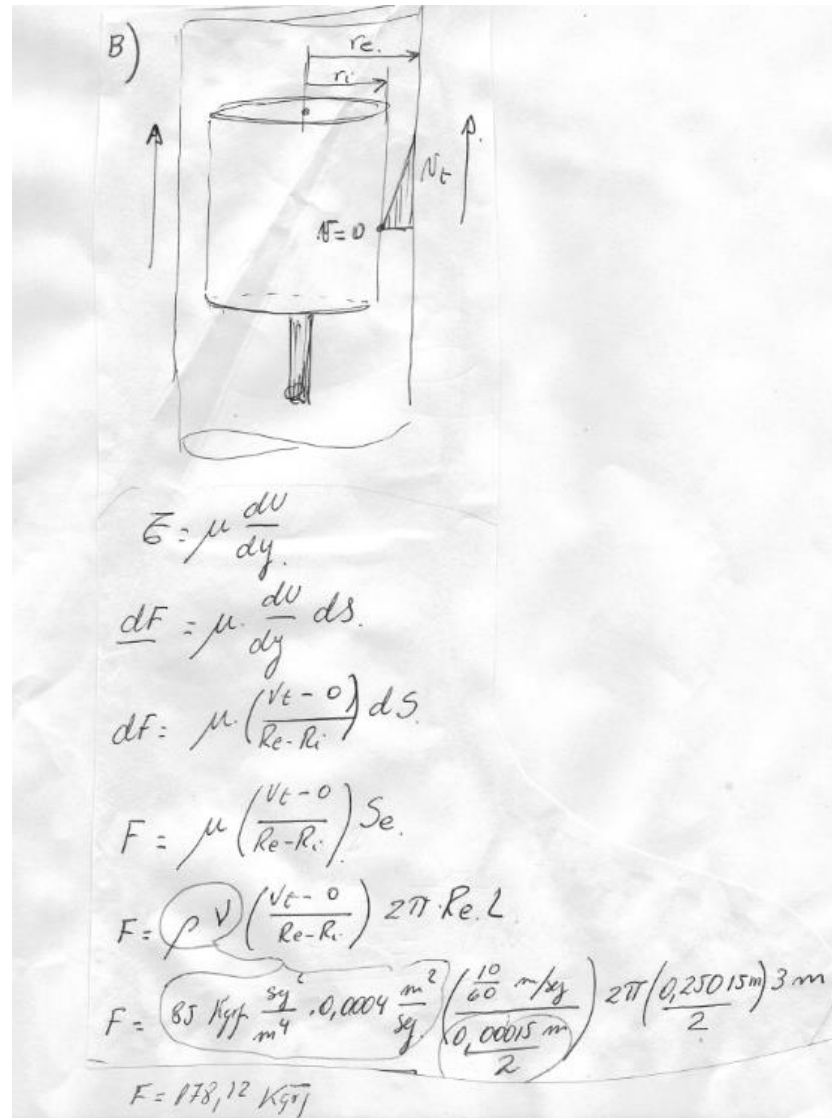 B)
re.
ri
Vt
V=0
τ = μ dv/dy.
dF = μ. dv/dy ds.
dF = μ.(Vt - 0 / Re-Ri) ds.
F = μ (Vt - 0 / Re-Ri) Se.
F = ρ ν (Vt - 0 / Re-Ri.) 2π.Re.L
F = 85 Kgrf sg²/m⁴ .0,0004 m²/sg (10/60 m/sg / 0,00015 m/2) 2π (0,25015m/2) 3 m
F = 178,12 Kgrf